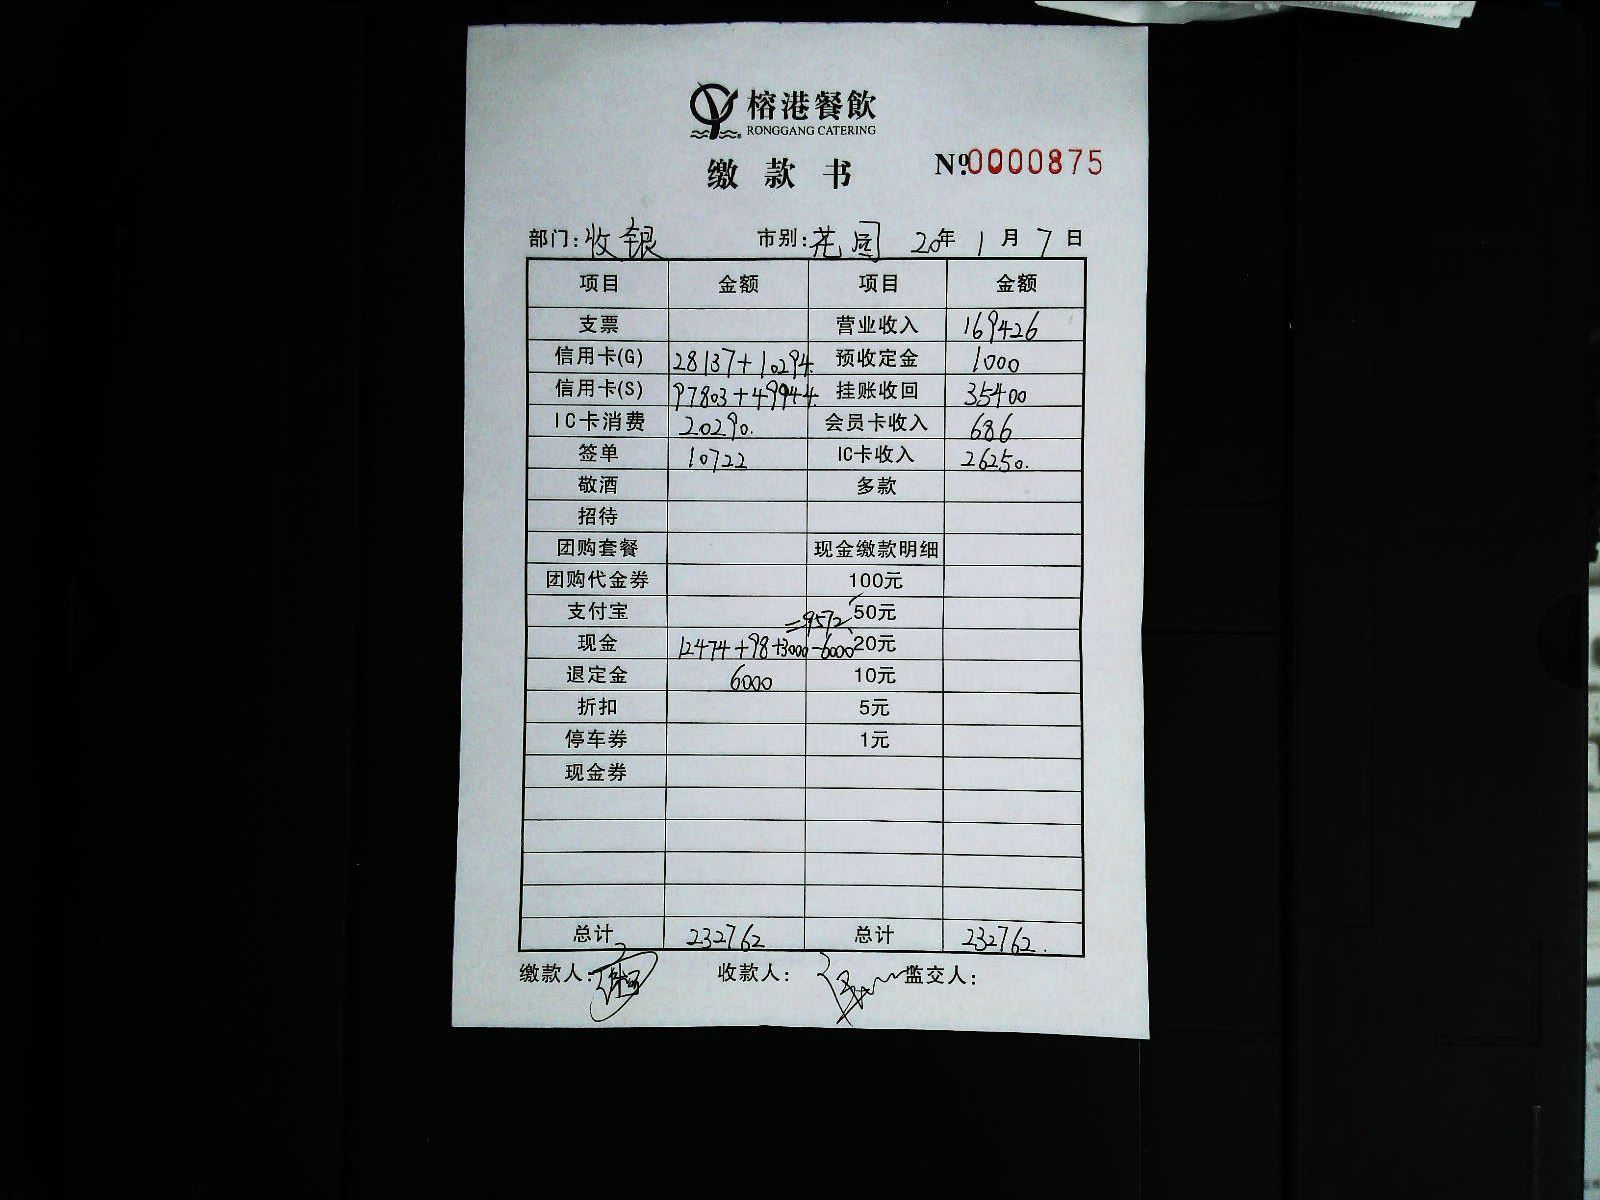 榕港餐飲
RONGGANG CATERING
缴款书 Nº0000875
部门:收银 市别:花园 20年1月7日
项目 金额 项目 金额
支票 营业收入 169426
信用卡(G) 28137+10294. 预收定金 1000
信用卡(S) 97803+49944. 挂账收回 35400
IC卡消费 20290. 会员卡收入 686
签单 10722 IC卡收入 26250.
敬酒 多款
招待
团购套餐 现金缴款明细
团购代金券 100元
支付宝 =9572 50元
现金 12474+98+3000-6000 20元
退定金 6000 10元
折扣 5元
停车券 1元
现金券
总计 232762 总计 232762.
缴款人: 收款人: 监交人: